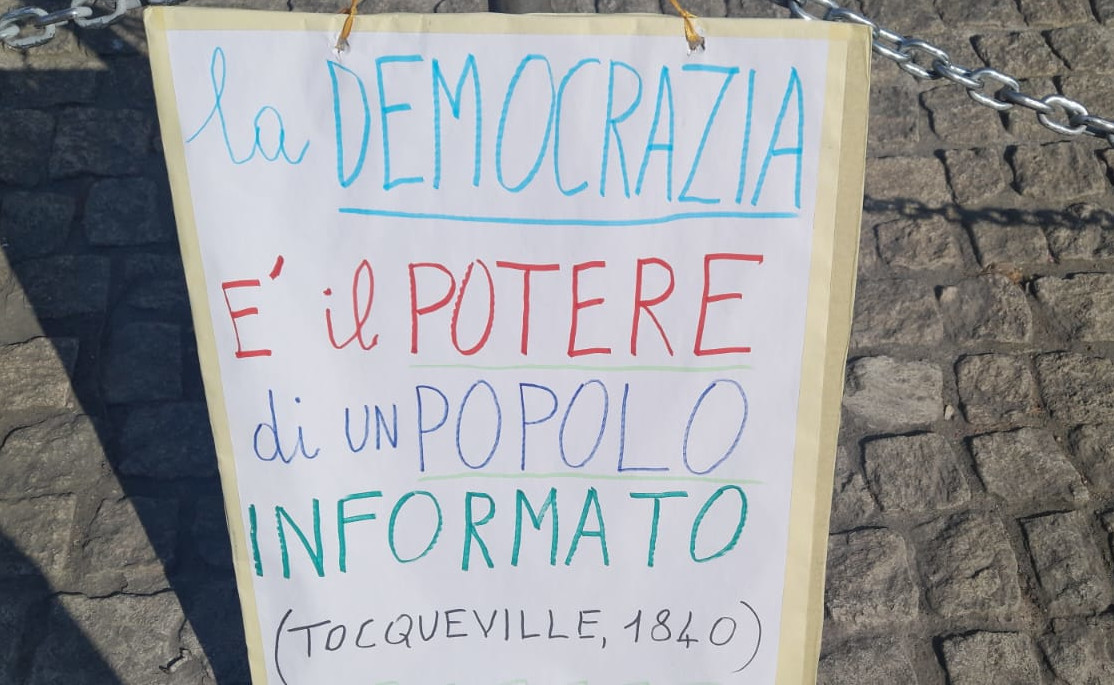 la DEMOCRAZIA
E' il POTERE
di UN POPOLO
INFORMATO
(TOCQUEVILLE, 1840)